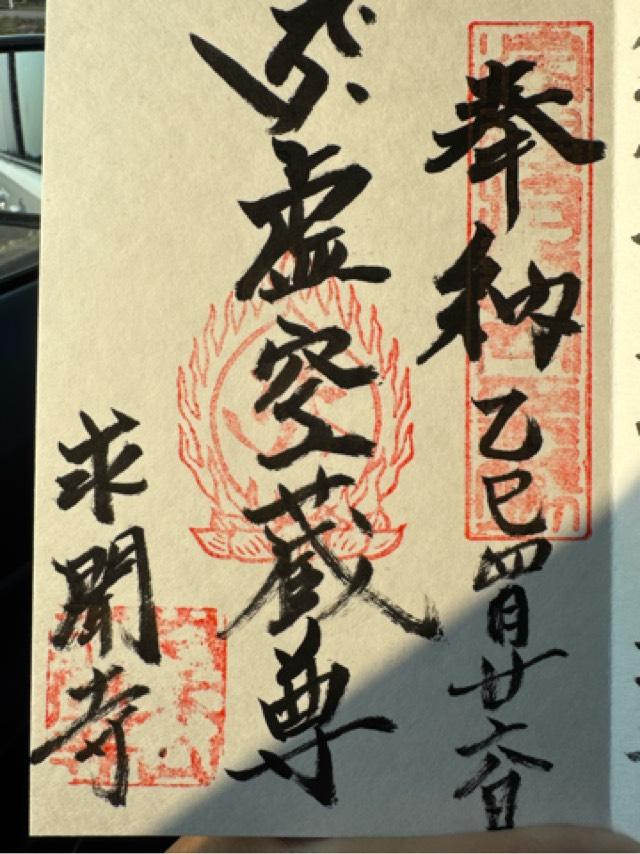 奉納 乙巳四月廿六日
虚空蔵尊
求聞寺